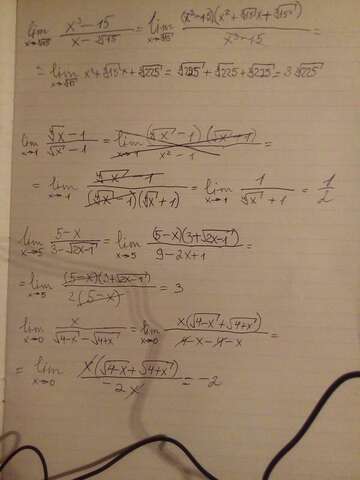 lim x→∛15 (x³-15)/(x-∛15) = lim x→∛15 ((x³-15)(x²+∛15x+∛225))/(x³-15) =
= lim x→∛15 x²+∛15x+∛225 = ∛225+∛225+∛225 = 3∛225
lim x→1 (∜x-1)/(√x-1) = lim x→1 =
= lim x→1 (∜x-1)/((∜x-1)(∜x+1)) = lim x→1 1/(∜x+1) = 1/2
lim x→5 (5-x)/(3-√2x-1) = lim x→5 ((5-x)(3+√2x-1))/(9-2x+1) =
= lim x→5 ((5-x)(3+√2x-1))/(2(5-x)) = 3
lim x→0 x/(√4-x-√4+x) = lim x→0 x(√4-x+√4+x)/(4-x-4-x) =
= lim x→0 x(√4-x+√4+x)/(-2x) = -2